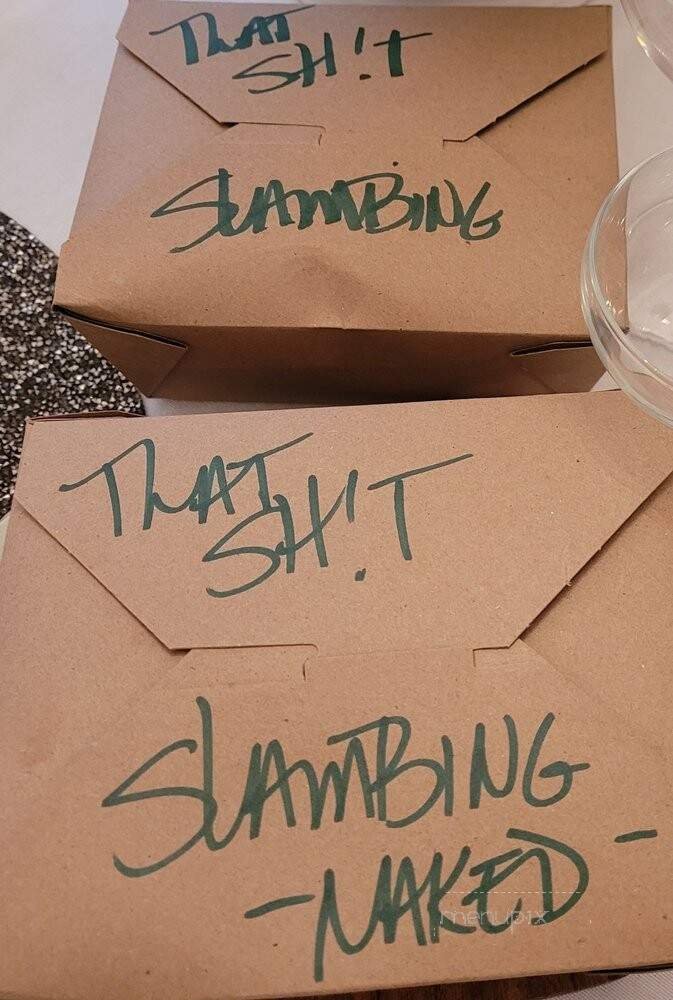 THAT
SH!T
SLAMBING
THAT
SH!T
SLAMBING
-NAKED-
menupix